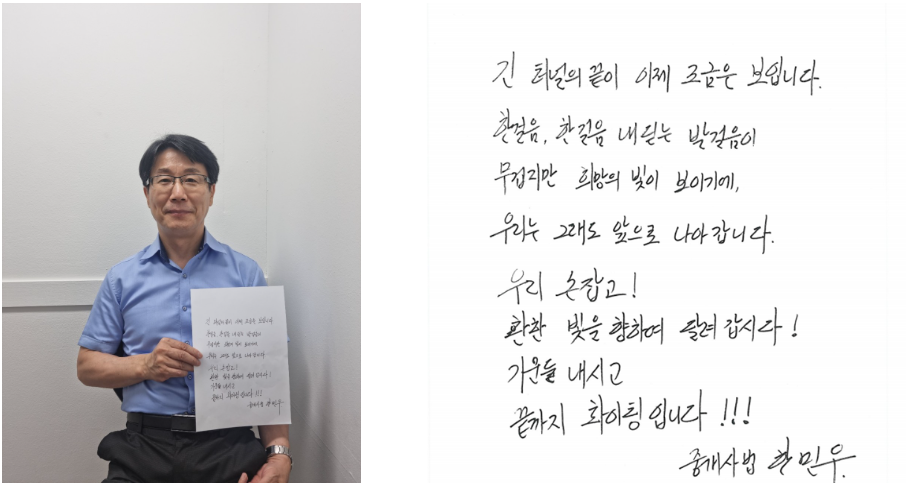 긴 터널의 끝이 이제 조금은 보입니다.
한걸음, 한걸음 내딛는 발걸음이
무겁지만 희망의 빛이 보이기에,
우리는 그래도 앞으로 나아갑니다.
우리 손잡고!
환한 빛을 향하여 달려 갑시다!
기운들 내시고
끝까지 화이팅입니다!!!
중개사법 한민우.